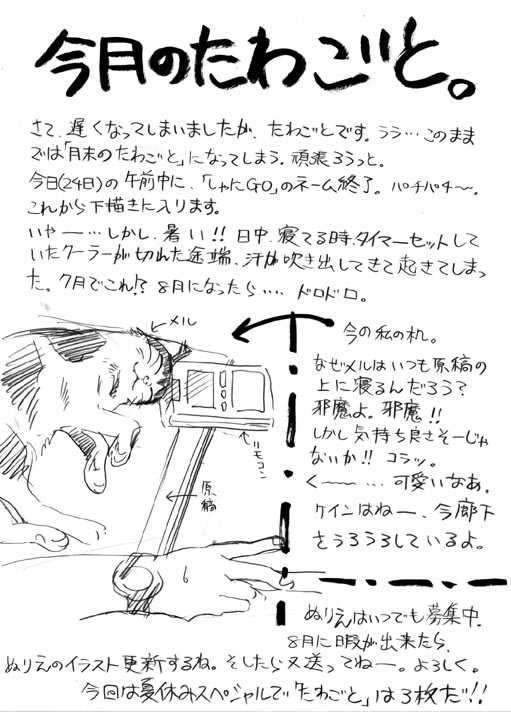 今月のたわごと。
さて、遅くなってしまいましたが、たわごとです。うう…このまま
では「月末のたわごと」になってしまう。頑張ろうっと。
今日(24日)の午前中に、「しゃにGO」のネーム終了。パチパチ〜。
これから下描きに入ります。
いやー…しかし、暑い!! 日中、寝てる時、タイマーセットして
いたクーラーが切れた途端、汗が吹き出してきて起きてしまっ
た。7月でこれ!? 8月になったら…‥ ドロドロ。
メル
リモコン
原稿
今の私の机。
なぜメルはいつも原稿の
上に寝るんだろう?
邪魔よ。邪魔!!
しかし気持ち良さそーじゃ
ないか!! コラッ。
く〜〜 … 可愛いなあ。
ケインはねー、今廊下
をうろうろしているよ。
ぬりえはいつでも募集中.
8月に暇が出来たら、
ぬりえのイラスト更新するね。そしたら又送ってねー。よろしく。
今回は夏休みスペシャルで「たわごと」は3枚だ!!